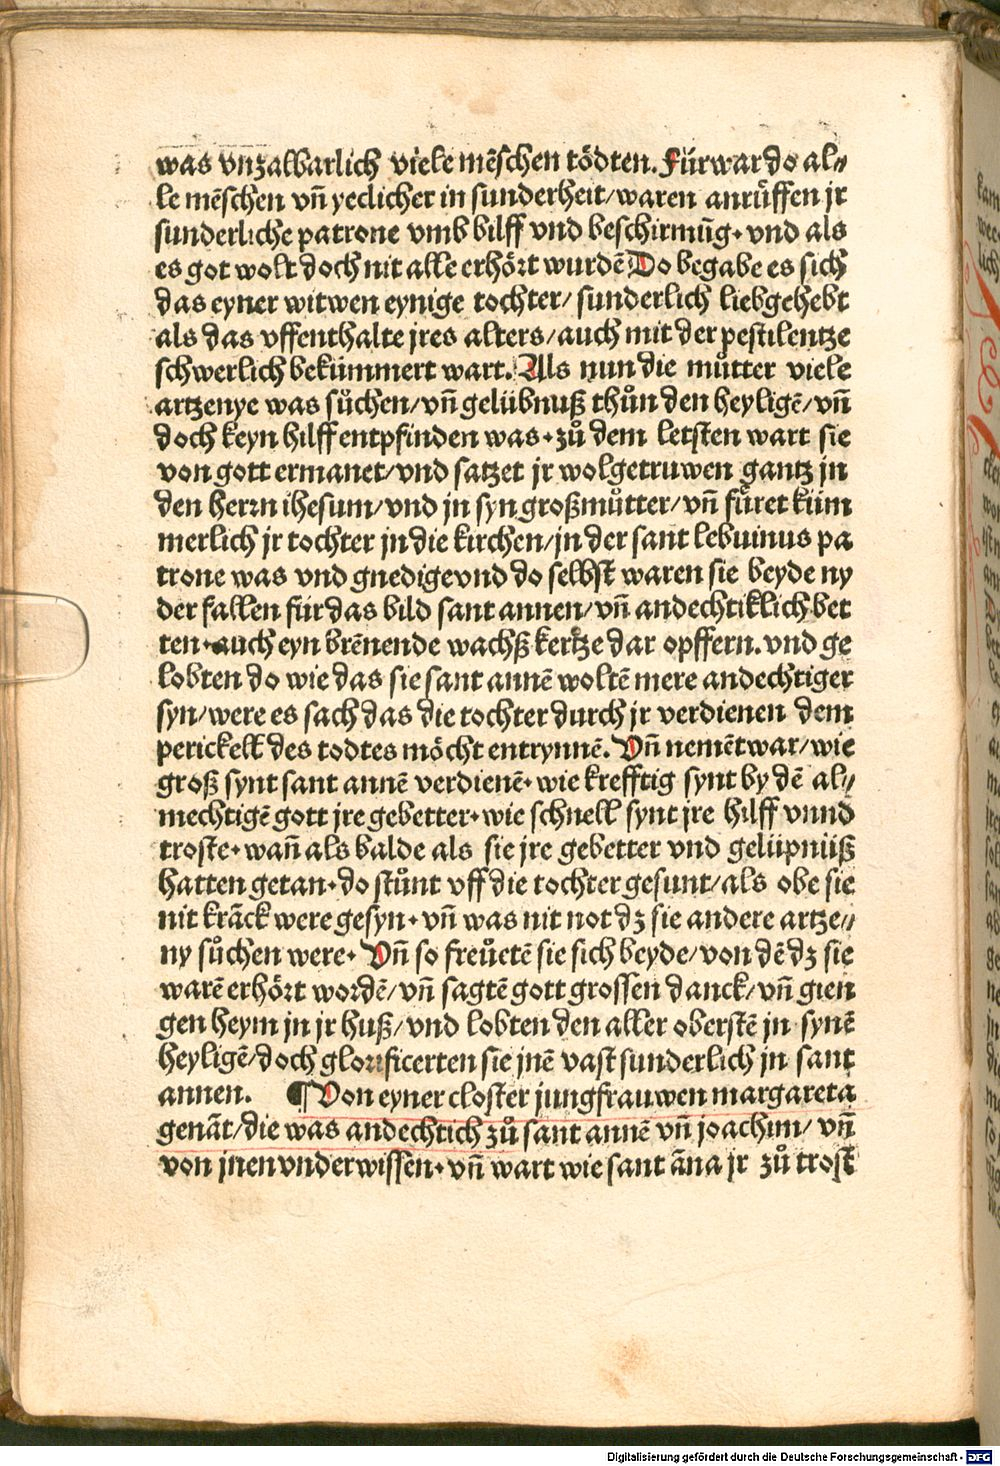 was vnzalbarlich viele mēschen tödten. Fürwar do al⸗
le mēschen vn̄ yeclicher in sunderheit/waren anrůffen jr
sunderliche patrone vmb bilff vnd beschirmūg. vnd als
es got wolt doch nit alle erhört wurdē Do begabe es sich
das eyner witwen eynige tochter/ sunderlich liebgehebt
als das vffenthalte jres alters/auch mit der pestilentze
schwerlich bekümmert wart. Als nun die můtter viele
artzenye was sůchen/vn̄ gelübnuß thůn den heyligē/vn̄
doch keyn hilff entpfinden was. zů dem letsten wart sie
von gott ermanet/vnd satzet jr wolgetruwen gantz jn
den herrn ihesum/vnd jn syn großmůtter/vn̄ fůret küm
merlich jr tochter jn die kirchen/jn der sant lebuinus pa
trone was vnd gnedige vnd do selbst waren sie beyde ny
der fallen für das bild sant annen/vn̄ andechtiklich bet
ten. auch eyn brēnende wachß kertze dar opffern. vnd ge
lobten do wie das sie sant annē woltē mere andechtiger
syn/were es sach das die tochter durch jr verdienen dem
perickell des todtes möcht entrynnē. Vn̄ nemēt war/wie
groß synt sant annē verdienē. wie krefftig synt by dē al⸗
mechtigē gott jre gebetter. wie schnell synt jre hilff vnnd
troste. wan̄ als balde als sie jre gebetter vnd gelüpnüß
hatten getan. do stůnt vff die tochter gesunt/als obe sie
nit krāck were gesyn. vn̄ was nit not dz sie andere artze⸗
ny sůchen were. Vn̄ so freůetē sie sich beyde/von dē dz sie
warē erhört wordē/vn̄ sagtē gott grossen danck/vn̄ gien
gen heym jn jr huß/vnd lobten den aller oberstē jn synē
heyligē/doch glorificerten sie jnē vast sunderlich jn sant
annen. ¶ Von eyner closter jungfrauwen margareta
genāt/die was andechtich zů sant annē vn̄ joachim/ vn̄
von jnen vnderwissen. vn̄ wart wie sant āna jr zů trost
Digitalisierung gefördert durch die Deutsche Forschungsgemeinschaft - DFG